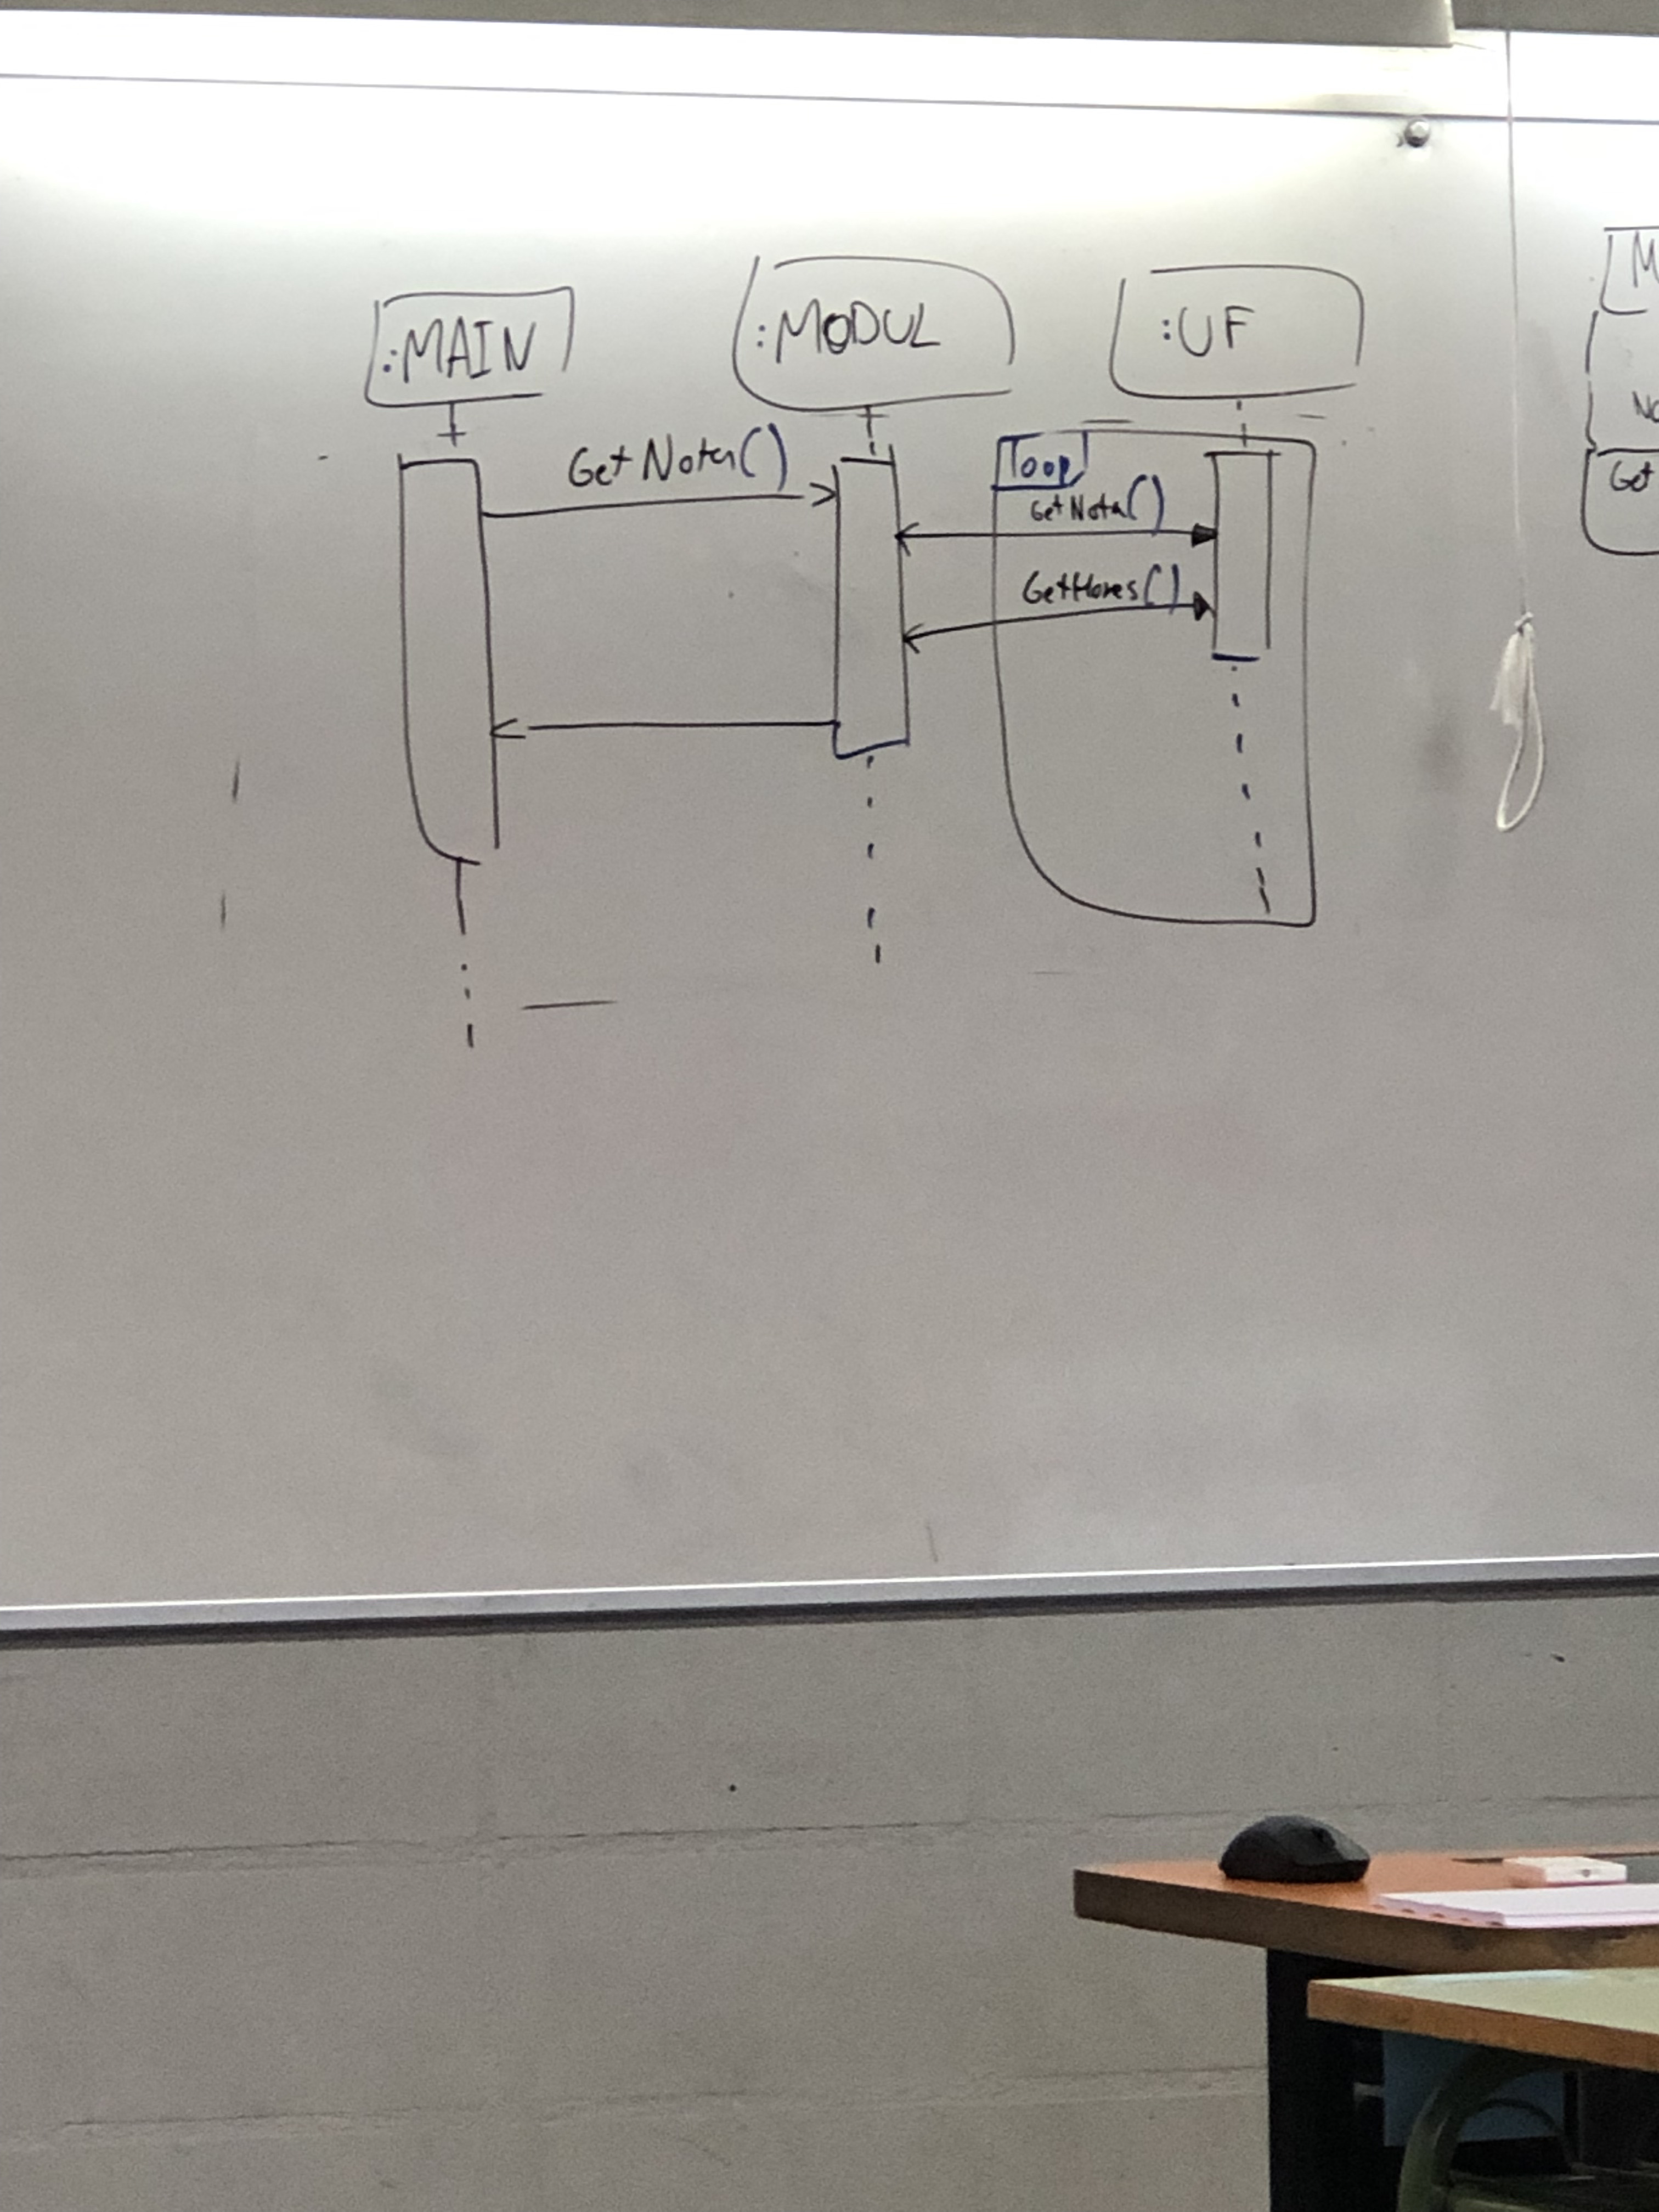 :MAIN
:MODUL
:UF
GetNota()
loop
GetNota()
GetHores()
M
No
Get